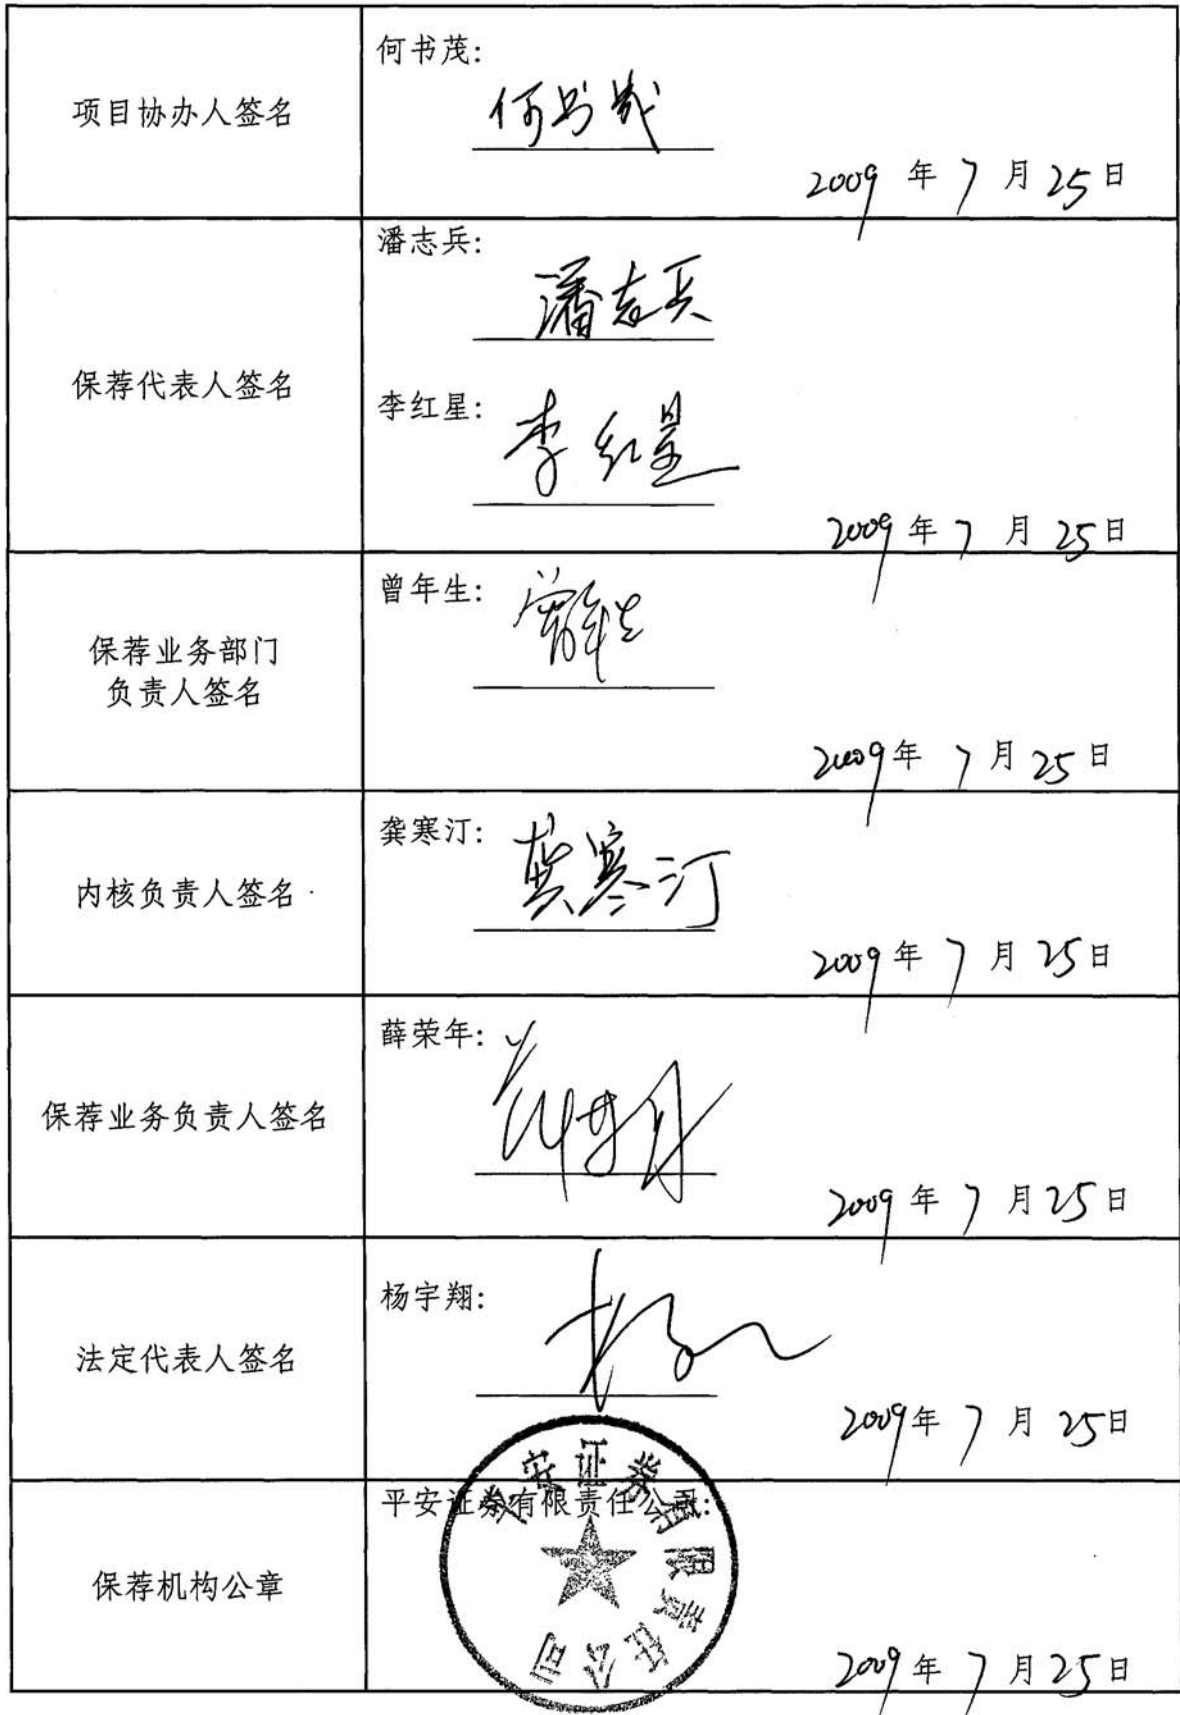 项目协办人签名
何书茂:
何书茂
2009 年 7 月 25 日
保荐代表人签名
潘志兵:
潘志兵
李红星:
李红星
2009 年 7 月 25 日
保荐业务部门
负责人签名
曾年生:
曾年生
2009 年 7 月 25 日
内核负责人签名
龚寒汀:
龚寒汀
2009 年 7 月 25 日
保荐业务负责人签名
薛荣年:
2009 年 7 月 25 日
法定代表人签名
杨宇翔:
2009 年 7 月 25 日
保荐机构公章
平安证券有限责任公司:
平安证券有限责任公司
2009 年 7 月 25 日